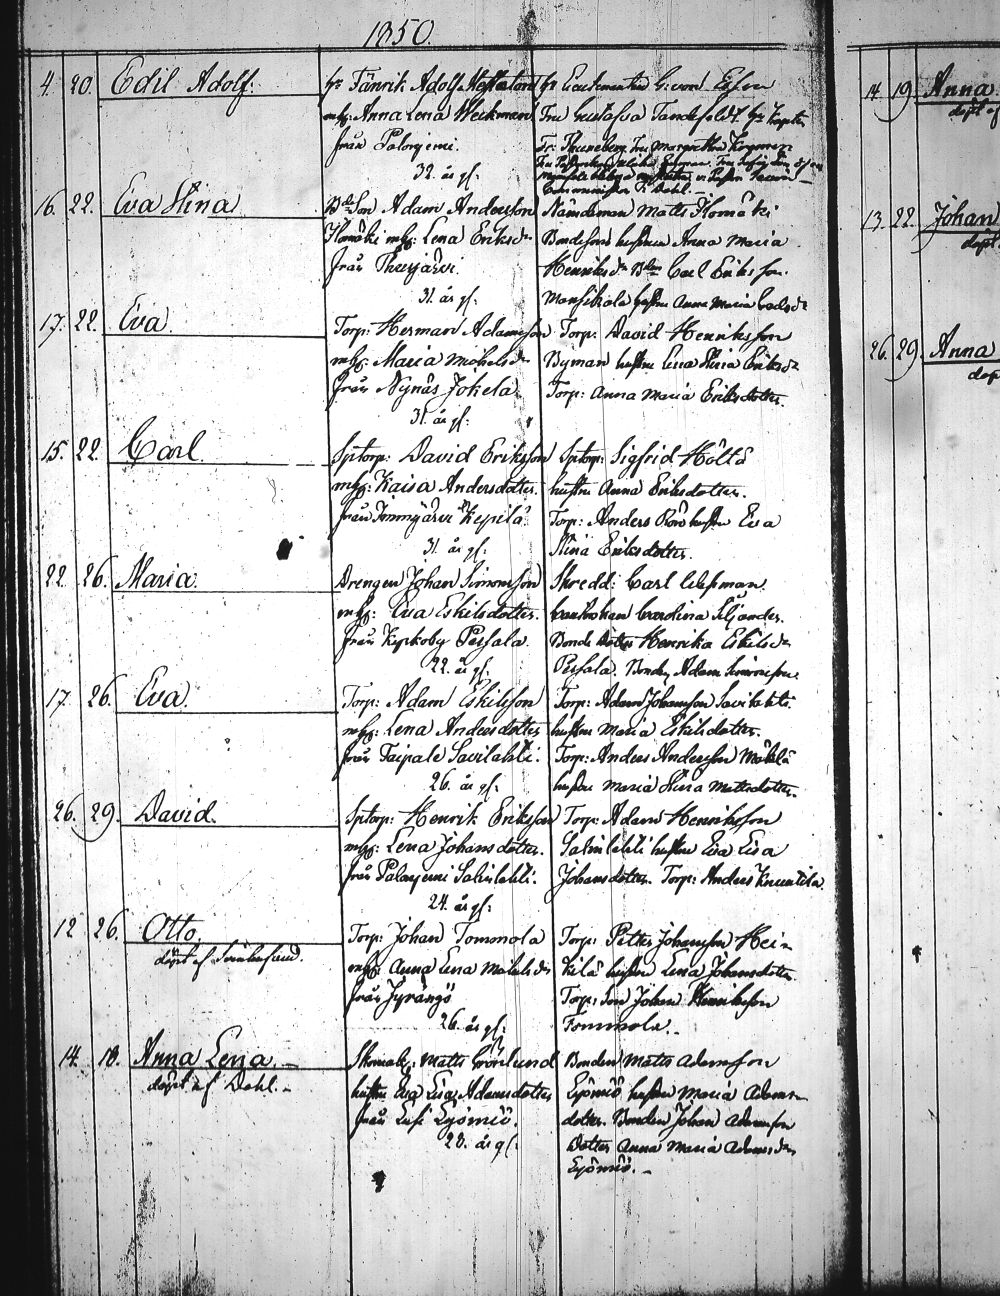 1850.
4. 20. Edil Adolf.
hr Fänrik Adolf
mhg: Anna Lena Weckman
från Palonjemi.
32. år gl:
hr Lieutenanten G: von Essen
Fru Gustafva Tandefeldt.
Fru Margaretha
Comminister P: Dahl. -
16. 22. Eva Stina
Bdeson Adam Andersson
Ilomäki mhg: Lena Eriksdr
från Thesjärvi.
31. år gl:
Nämdeman Matts Ilomäki
Bondesons hustru Anna Maria
Henriksdr Bdson Carl Eriksson
Mansikala hustru Anna Maria Carlsdr
17. 22. Eva.
Torp: Herman Adamsson
mhg: Maria Michelsdr
från Nynäs Jokela.
31. år gl:
Torp. David Henriksson
Byman hustru Lena Stina Eriksdr
Torp: Anna Maria Eriksdotter.
15. 22. Carl.
Sptorp: David Eriksson
mhg: Kaisa Andersdotter.
från Immjärvi Kepilä.
31. år gl:
Sptorp: Sigfrid Höltä
hustru Anna Eriksdotter.
Torp: Anders Rövö hustru Eva
Stina Eriksdotter.
22. 26. Maria.
Drengen Johan Simonsson
mhg: Eva Eskilsdotter.
från Kyrkoby Persala.
22. år gl:
Skredd: Carl Wesman
Carolina Siljander.
Bonde dotter Henrika Eskilsdr
Persala. Bonden Adam Simonsson.
17. 26. Eva.
Torp: Adam Eskilsson
mhg: Lena Andersdotter
från Taipale Savilahti.
26. år gl:
Torp: Adam Johansson Savilahti.
hustru Maria Eskilsdotter.
Torp: Anders Andersson Mäkelä
hustru Maria Stina Mattsdotter.
26. 29. David.
Sptorp: Henrik Eriksson
mhg: Lena Johansdotter.
från Palonjemi Savilahti.
24. år gl:
Torp: Adam Henriksson
Savilahti hustru Eva Lisa
Johansdotter. Torp: Anders Knuutila
12 26. Otto.
döpt af
Torp: Johan Tommola
mhg: Anna Lena Michelsdr
från Jyrängö
26. år gl:
Torp: Petter Johansson Hei-
kilä hustru Lena Johansdotter
Torp: son Johan Henriksson
Tommola. -
14. 18. Anna Lena. -
döpt af Dahl. -
Skomak: Matts Grönlund
hustru Eva Lisa Adamsdotter
från Lusi Lyömiö.
28. år gl:
Bonden Matts Adamsson
Lyömiö hustru Maria Adams-
dotter. Bonden Johan Adamsson
dotter Anna Maria Adamsdr
Lyömiö. -
14 19. Anna
döpt af
13. 22. Johan
döpt
26. 29. Anna
döp